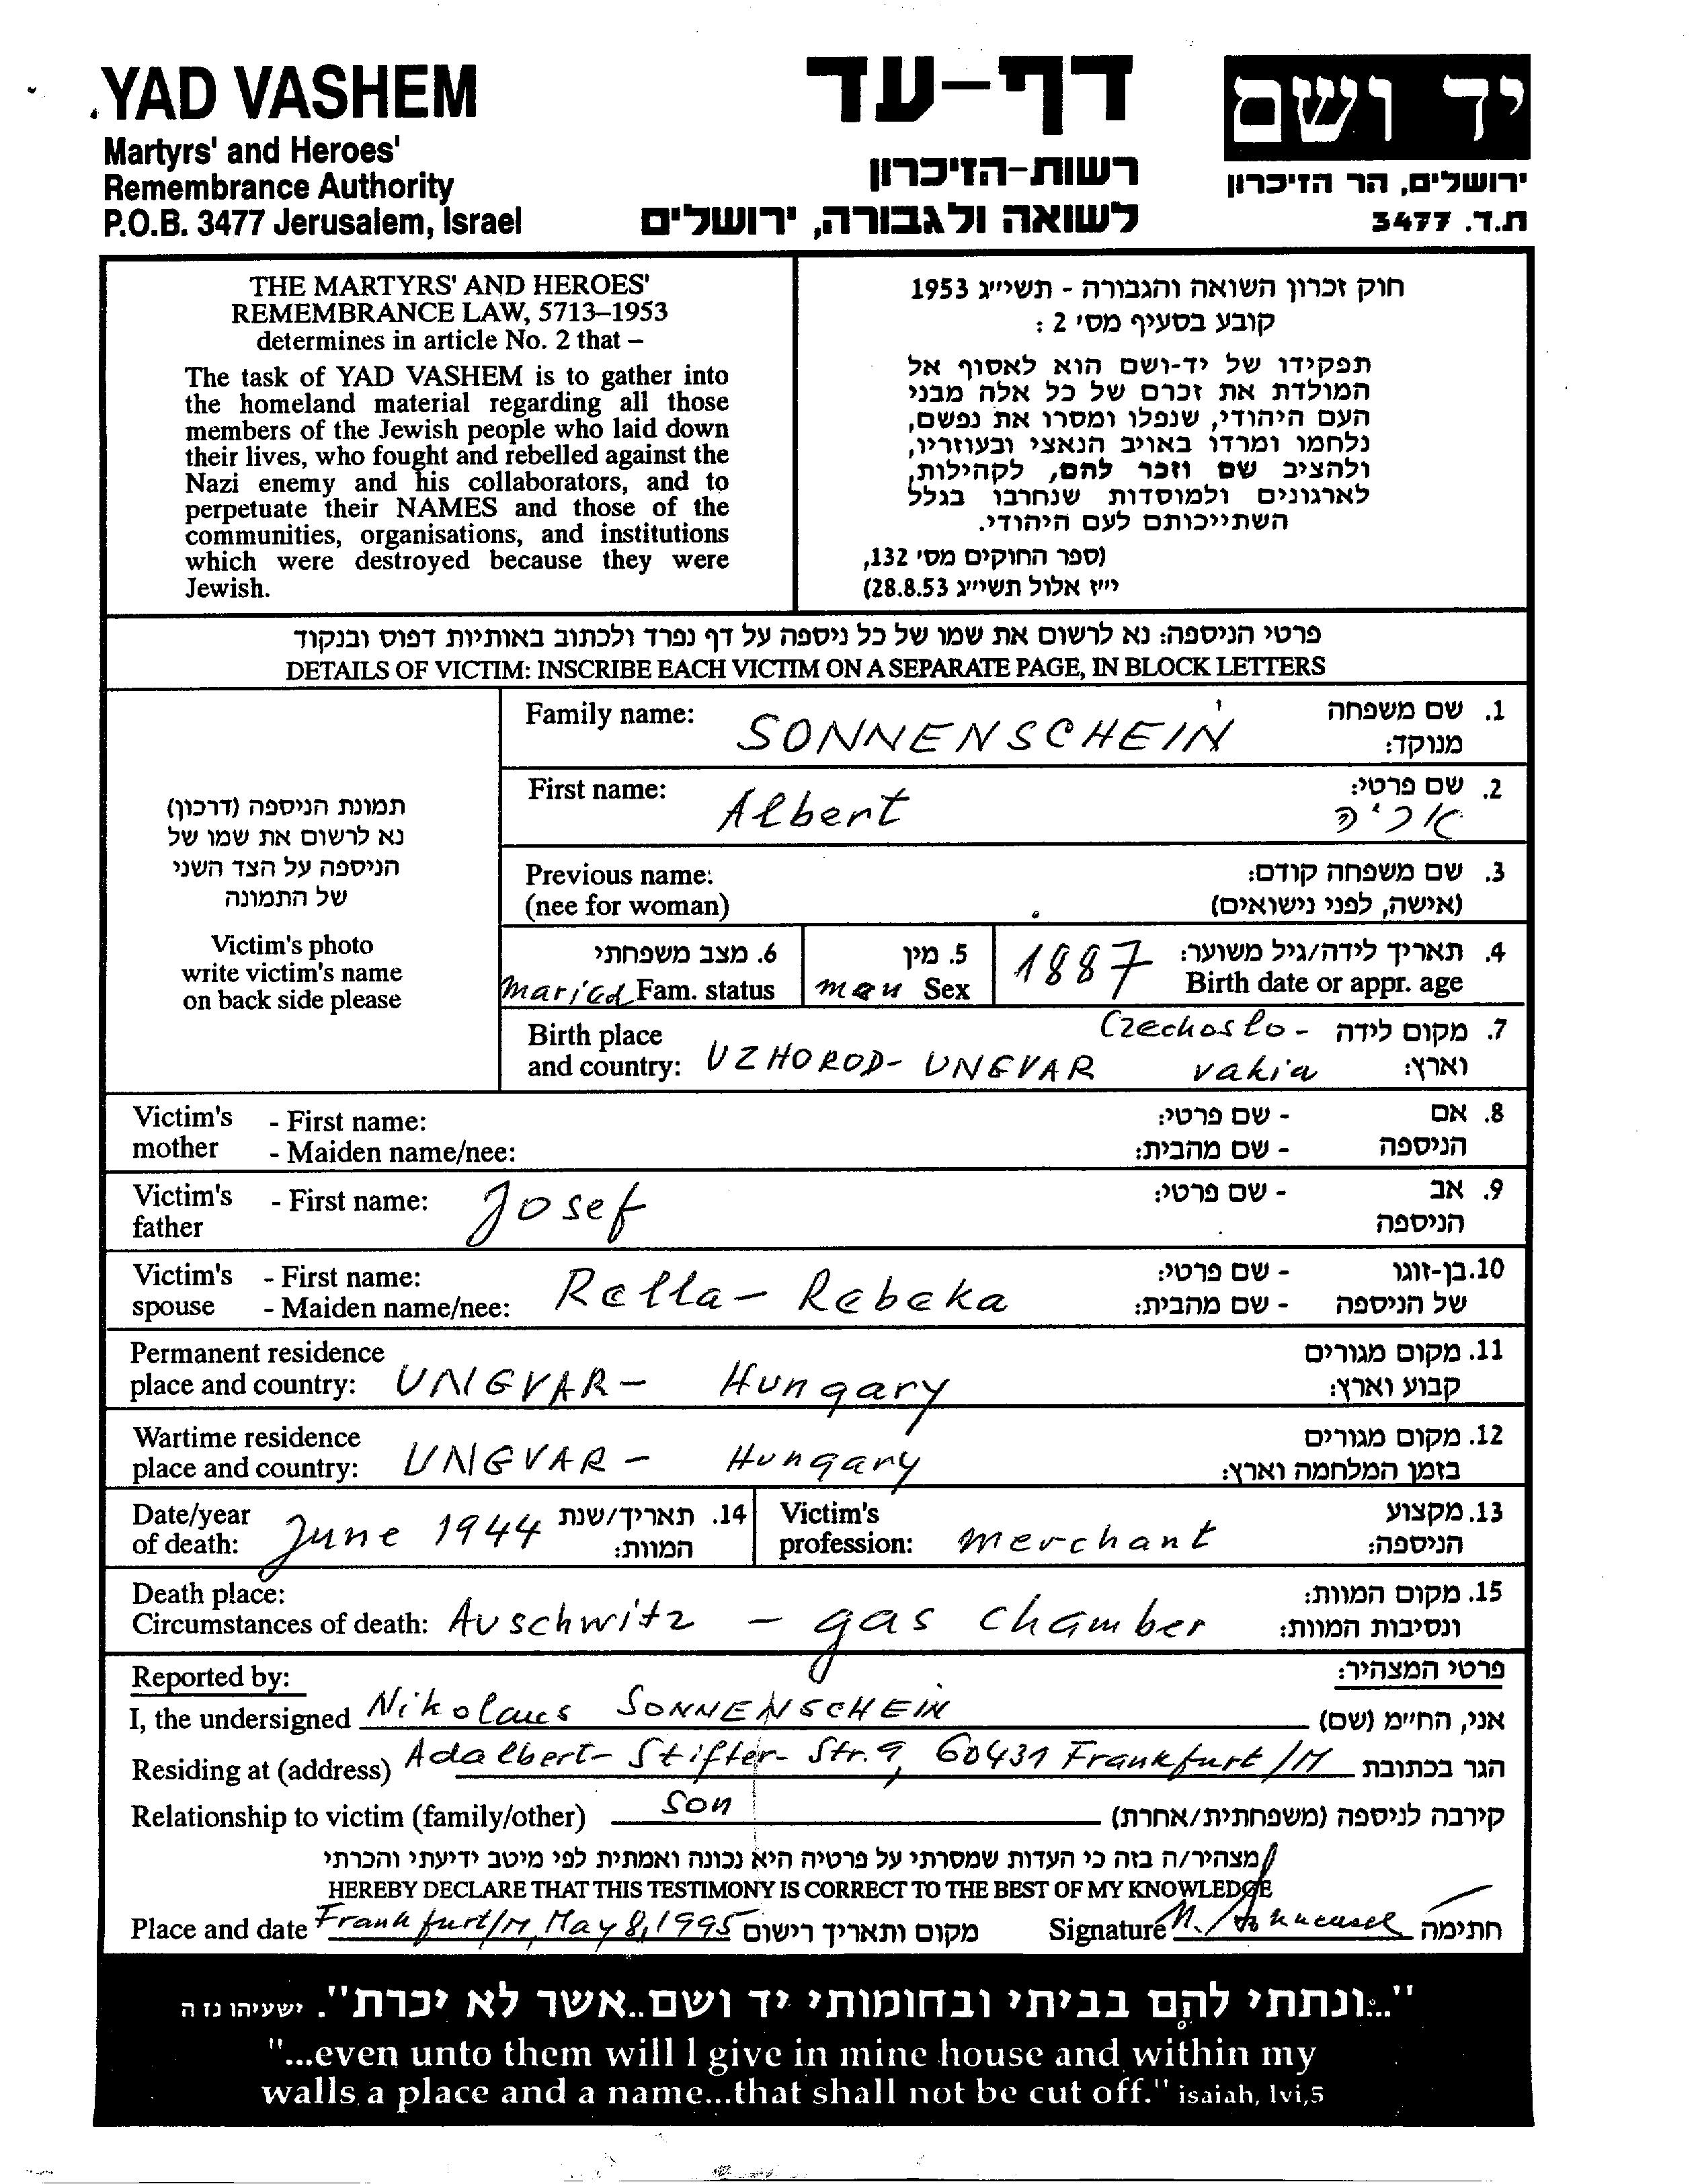 YAD VASHEM
Martyrs' and Heroes'
Remembrance Authority
P.O.B. 3477 Jerusalem, Israel
דף-עד
רשות-הזיכרון
לשואה ולגבורה, ירושלים
יד ושם
ירושלים, הר הזיכרון
ת.ד. 3477
THE MARTYRS' AND HEROES'
REMEMBRANCE LAW, 5713–1953
determines in article No. 2 that –
The task of YAD VASHEM is to gather into
the homeland material regarding all those
members of the Jewish people who laid down
their lives, who fought and rebelled against the
Nazi enemy and his collaborators, and to
perpetuate their NAMES and those of the
communities, organisations, and institutions
which were destroyed because they were
Jewish.
חוק זכרון השואה והגבורה - תשי״ג 1953
קובע בסעיף מס' 2 :
תפקידו של יד-ושם הוא לאסוף אל
המולדת את זכרם של כל אלה מבני
העם היהודי, שנפלו ומסרו את נפשם,
נלחמו ומרדו באויב הנאצי ובעוזריו,
ולהציב שם וזכר להם, לקהילות,
לארגונים ולמוסדות שנחרבו בגלל
השתייכותם לעם היהודי.
(ספר החוקים מס' 132,
י״ז אלול תשי״ג 28.8.53)
פרטי הניספה: נא לרשום את שמו של כל ניספה על דף נפרד ולכתוב באותיות דפוס ובנקוד
DETAILS OF VICTIM: INSCRIBE EACH VICTIM ON A SEPARATE PAGE, IN BLOCK LETTERS
תמונת הניספה (דרכון)
נא לרשום את שמו של
הניספה על הצד השני
של התמונה
Victim's photo
write victim's name
on back side please
Family name: SONNENSCHEIN 1. שם משפחה
מנוקד:
First name: Albert 2. שם פרטי:
אריה
Previous name: 3. שם משפחה קודם:
(nee for woman) (אישה, לפני נישואים)
6. מצב משפחתי 5. מין 1887 4. תאריך לידה/גיל משוער:
maried Fam. status man Sex Birth date or appr. age
Birth place Czechoslo- 7. מקום לידה
and country: UZHOROD- UNGVAR vakia וארץ:
Victim's - First name: - שם פרטי: 8. אם
mother - Maiden name/nee: - שם מהבית: הניספה
Victim's - First name: Josef - שם פרטי: 9. אב
father הניספה
Victim's - First name: - שם פרטי: 10. בן-זוגו
spouse - Maiden name/nee: Rella- Rebeka - שם מהבית: של הניספה
Permanent residence 11. מקום מגורים
place and country: UNGVAR- Hungary קבוע וארץ:
Wartime residence 12. מקום מגורים
place and country: UNGVAR- Hungary בזמן המלחמה וארץ:
Date/year 14. תאריך/שנת Victim's 13. מקצוע
of death: June 1944 המוות: profession: merchant הניספה:
Death place: 15. מקום המוות:
Circumstances of death: Auschwitz - gas chamber ונסיבות המוות:
Reported by: פרטי המצהיר:
I, the undersigned Nikolaus SONNENSCHEIN אני, החי״מ (שם)
Residing at (address) Adalbert- Stifter- Str. 9, 60431 Frankfurt/M הגר בכתובת
Relationship to victim (family/other) Son קירבה לניספה (משפחתית/אחרת)
מצהיר/ה בזה כי העדות שמסרתי על פרטיה היא נכונה ואמתית לפי מיטב ידיעתי והכרתי
HEREBY DECLARE THAT THIS TESTIMONY IS CORRECT TO THE BEST OF MY KNOWLEDGE
Place and date Frankfurt/M, May 8, 1995 מקום ותאריך רישום Signature חתימה
"...ונתתי להם בביתי ובחומותי יד ושם..אשר לא יכרת". ישעיהו נז ה
"...even unto them will I give in mine house and within my
walls a place and a name...that shall not be cut off." isaiah, lvi,5